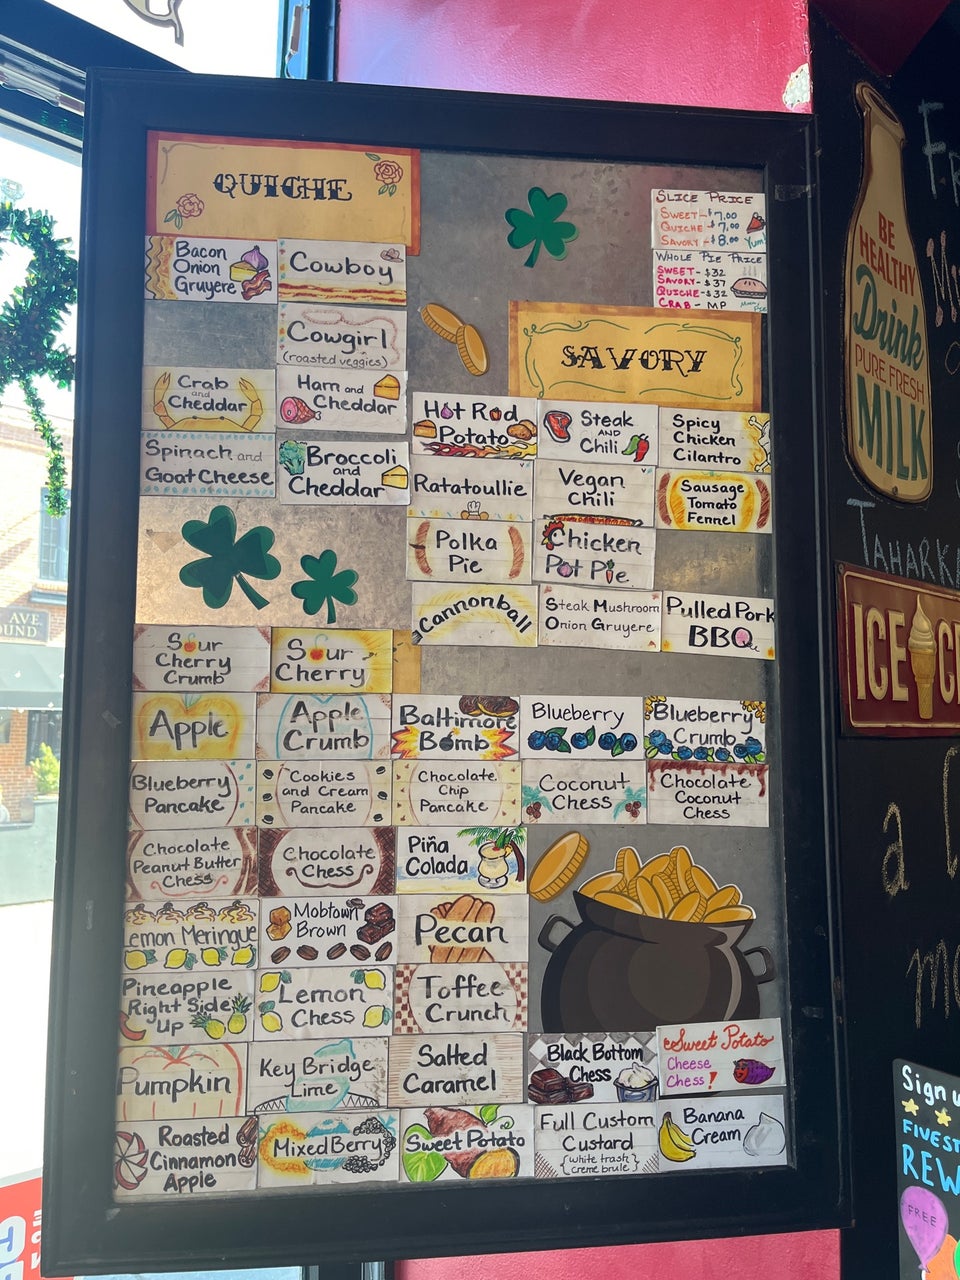 QUICHE
SLICE PRICE
SWEET - $7.00
QUICHE - $7.00
SAVORY - $8.00
Yum!
WHOLE PIE PRICE
SWEET - $32
SAVORY - $37
QUICHE - $32
CRAB - MP
Bacon
Onion
Gruyere
Cowboy
Cowgirl
(roasted veggies)
Crab
and
Cheddar
Ham and
Cheddar
Spinach and
Goat Cheese
Broccoli
and
Cheddar
SAVORY
Hot Rod
Potato
Steak
AND
Chili
Spicy
Chicken
Cilantro
Ratatoullie
Vegan
Chili
Sausage
Tomato
Fennel
Polka
Pie
Chicken
Pot Pie
Cannonball
Steak Mushroom
Onion Gruyere
Pulled Pork
BBQ
Sour
Cherry
Crumb
Sour
Cherry
Apple
Apple
Crumb
Baltimore
Bomb
Blueberry
Blueberry
Crumb
Blueberry
Pancake
Cookies
and Cream
Pancake
Chocolate
Chip
Pancake
Coconut
Chess
Chocolate
Coconut
Chess
Chocolate
Peanut Butter
Chess
Chocolate
Chess
Piña
Colada
Lemon Meringue
Mobtown
Brown
Pecan
Pineapple
Right Side
Up
Lemon
Chess
Toffee
Crunch
Pumpkin
Key Bridge
Lime
Salted
Caramel
Black Bottom
Chess
Sweet Potato
Cheese
Chess!
Roasted
Cinnamon
Apple
Mixed Berry
Sweet Potato
Full Custom
Custard
{white trash
creme brule}
Banana
Cream
BE
HEALTHY
Drink
PURE FRESH
MILK
ICE
Sign
REW
FREE
AVE